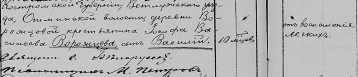 Костромской губернiи Ветлужского уѣз-
да, Спиминской волости деревни Во-
рожцовой крестьянина Iосифа Ва-
сильева Ворожцова, сынъ Василiй. 10 мѣсяц. отъ воспаленiя легкихъ.
Священн. о.
Псаломщикъ М. Петровъ